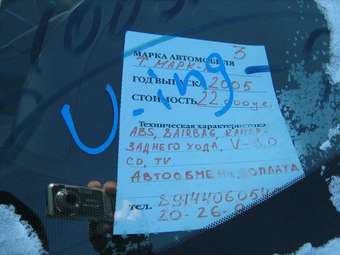 3
МАРКА АВТОМОБИЛЯ
Т. МАРК-
ГОД ВЫПУСКА 2005
СТОИМОСТЬ 22.000у.е.
U-ing
Техническая характеристика
ABS, 2AIRBAG, КАМЕРА
ЗАДНЕГО ХОДА, V-3.0
CD, TV
АВТООБМЕН, ДОПЛАТА
тел.
20-26.